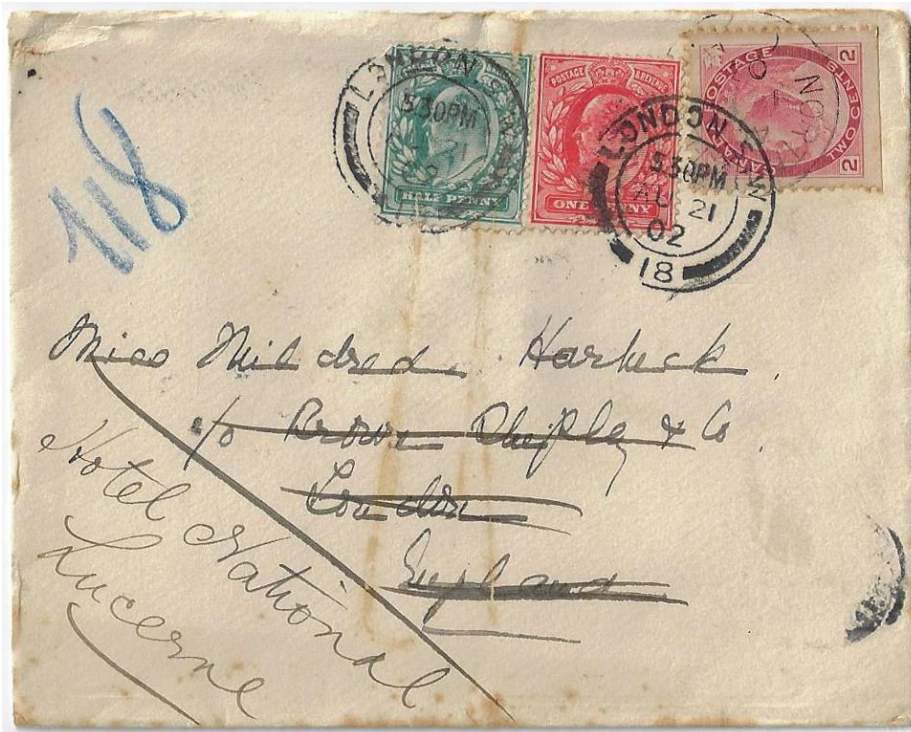 LONDON
5 30 PM
21
HALF PENNY
POSTAGE & REVENUE
ONE PENNY
LONDON
5 30 PM
AU 21
02
18
POSTAGE
TWO CENTS
2 2
NOR
118
Miss Mildred Harbeck
c/o Brown Shipley & Co
London
England
Hotel National
Lucerne